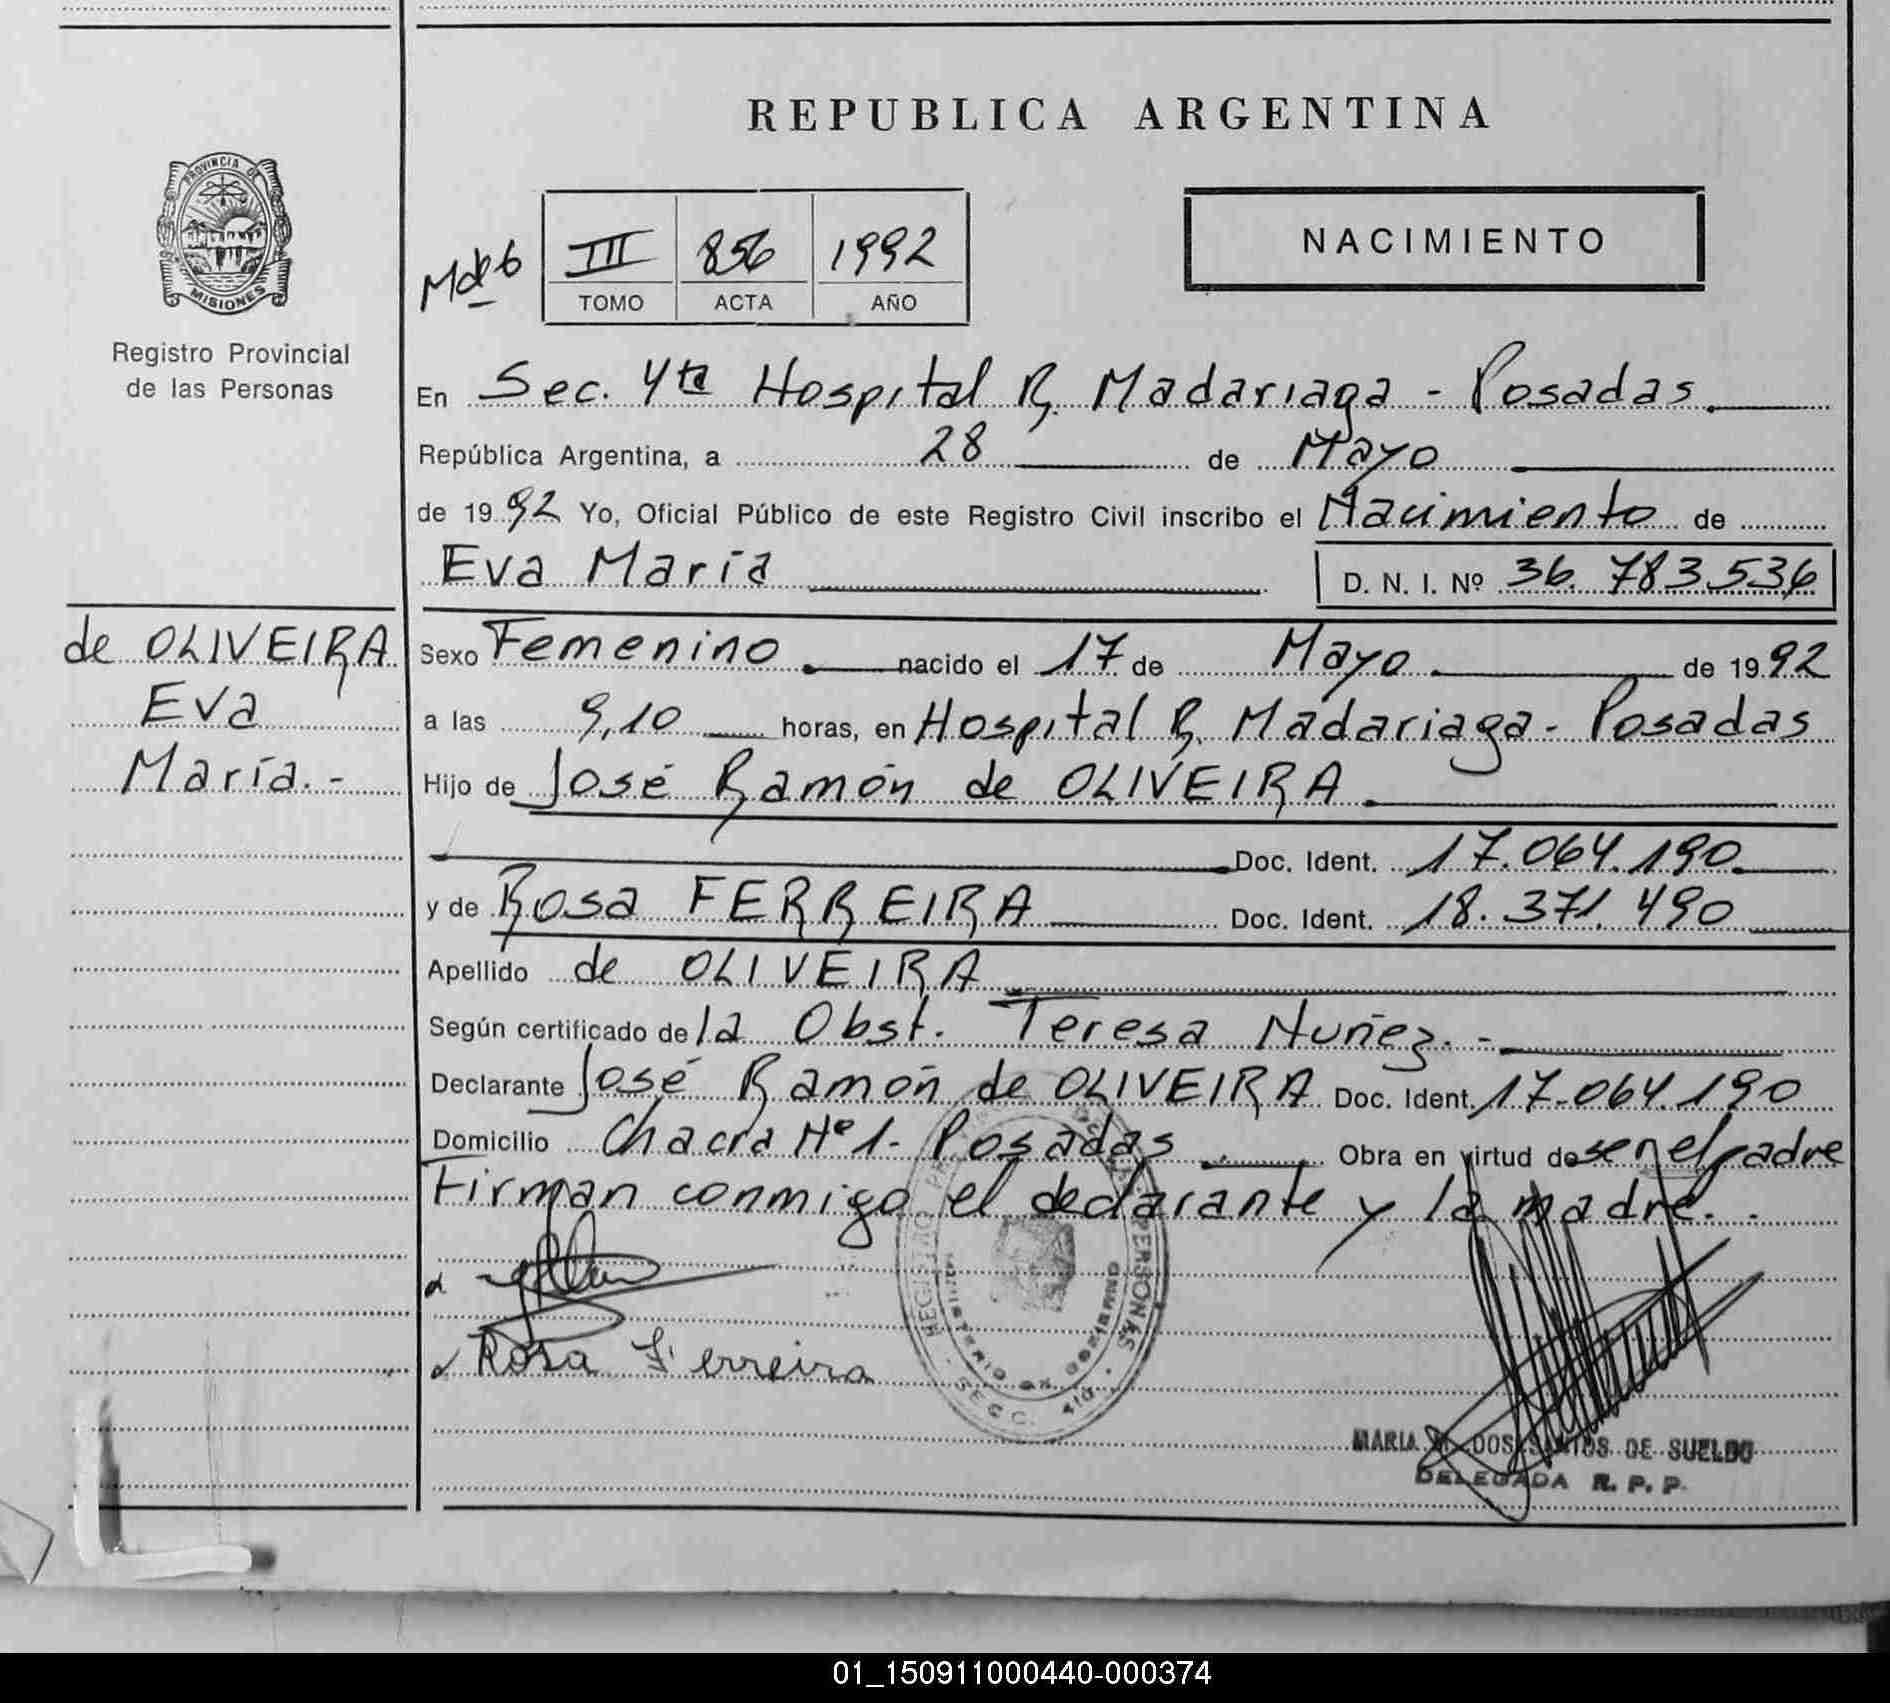 REPUBLICA ARGENTINA
PROVINCIA DE MISIONES
Registro Provincial
de las Personas
III 856 1992
TOMO ACTA AÑO
NACIMIENTO
En Sec. 4ta Hospital R. Madariaga - Posadas.
República Argentina, a 28 de Mayo
de 1992 Yo, Oficial Público de este Registro Civil inscribo el Nacimiento de
Eva María D. N. I. Nº 36.783.536
de OLIVEIRA
Eva
María.-
Sexo Femenino. nacido el 17 de Mayo de 1992
a las 9,10 horas, en Hospital R. Madariaga - Posadas
Hijo de José Ramón de OLIVEIRA
Doc. Ident. 17.064.190
y de Rosa FERREIRA Doc. Ident. 18.371.490
Apellido de OLIVEIRA
Según certificado de la Obst. Teresa Nuñez.-
Declarante José Ramón de OLIVEIRA Doc. Ident. 17.064.190
Domicilio Chacra Nº 1- Posadas Obra en virtud de ser el padre
Firman conmigo el declarante y la madre.
Rosa Ferreira
REGISTRO PERSONAS
MINISTERIO DE GOBIERNO
SECC. 4ta
MARIA DOS SANTOS DE SUELDO
DELEGADA R. P. P.
01_150911000440-000374